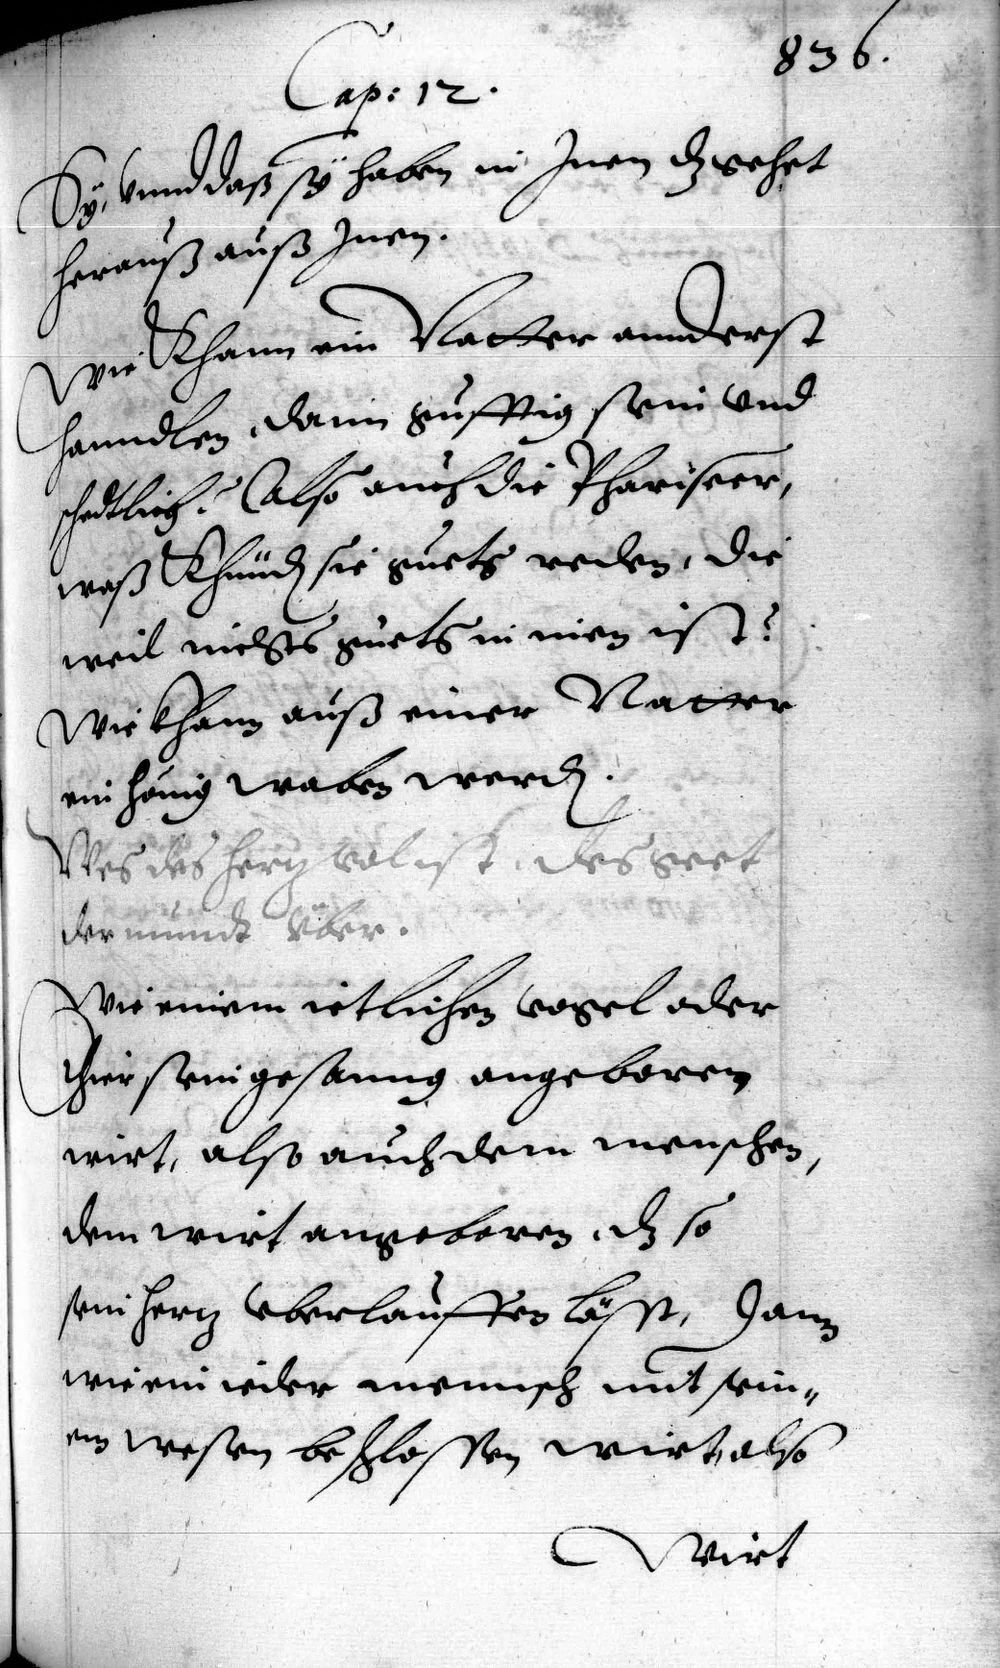 836.
Cap: 12.
Sÿ, vnnd daß sÿ haben in Inen dz gehet
herauß auß Inen.
Wie Khann ein Natter annderst
hanndlen, dann gufftig sein vnd
schedtlich? also auch die Phariseer,
waß Khünd sie guets reden, die
weil nichts guets in inen ist?
Wie khann auß einer Natter
ein hönig waben werd.
Wes das hertz vol ist, des geet
der mundt über.
Wie einem ietlichen vogel oder
thier sein gesanng angeboren
wirt, also auch dem menschen,
dem wirt angeboren, dz so
sein hertz vberlauffen lässt, dann
wie ein ieder mennsch mit sein„
em wesen beschlossen wirt, also
Wirt